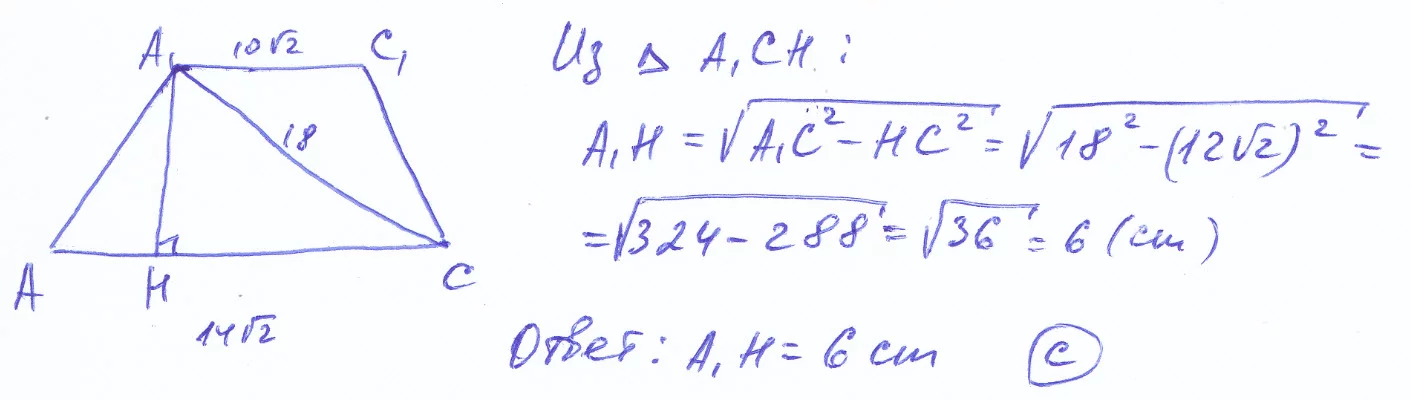 A₁ 10√2 C₁
18
A H C
14√2
Из △ A₁CH :
A₁H = √(A₁C² - HC²) = √(18² - (12√2)²) =
= √(324 - 288) = √36 = 6 (cm)
Ответ: A₁H = 6 cm C